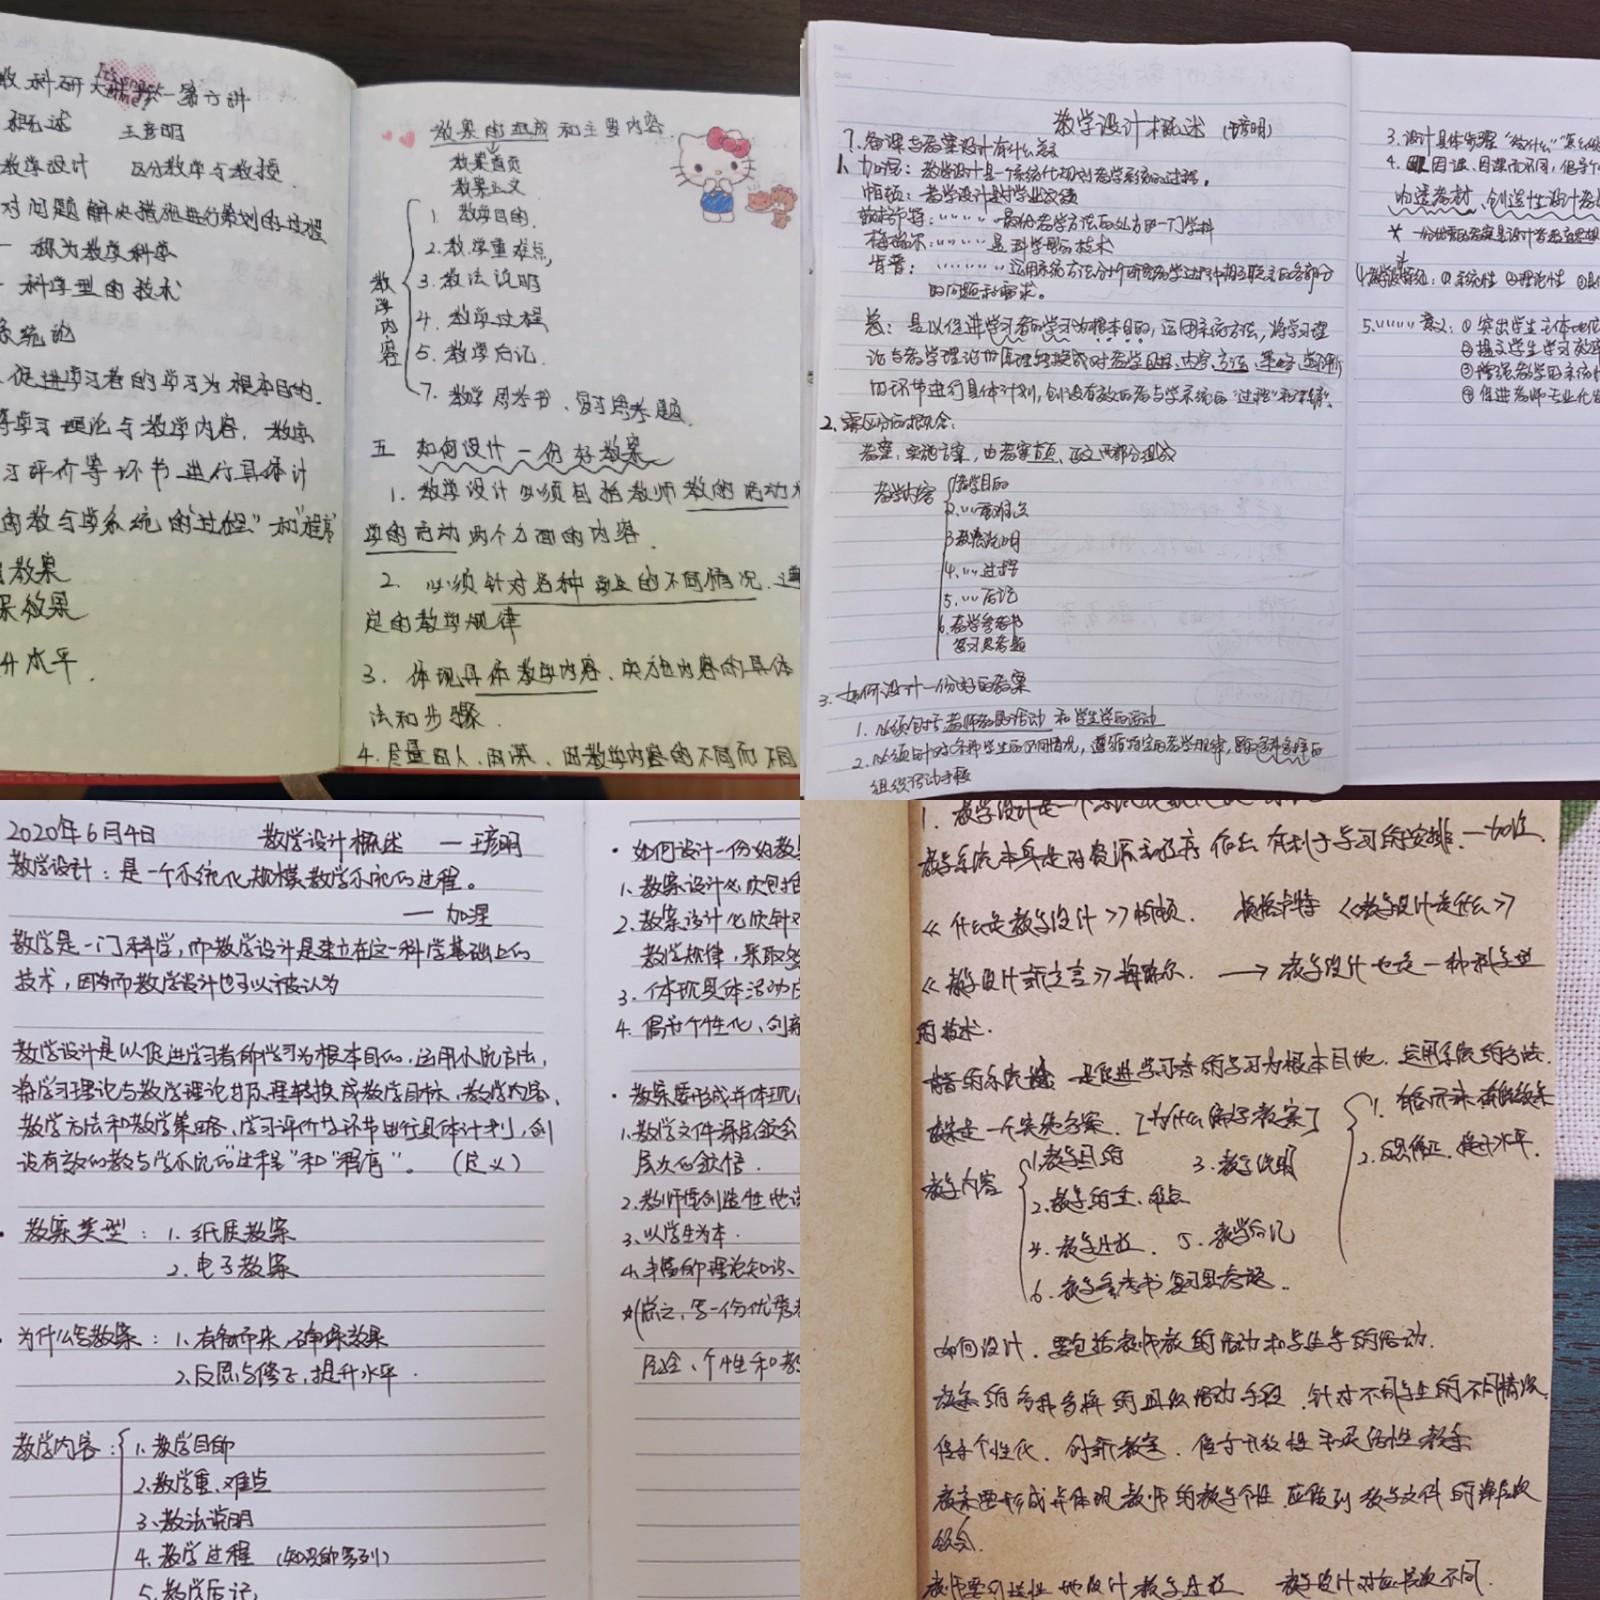 教科研大讲堂—第六讲
概述 王彦明
教学设计 区分教学与教授
对问题解决措施进行策划的过程
称为教学科学
科学型的技术
系统论
促进学习者的学习为根本目的.
学习理论与教学内容. 教学
习评价等环节进行具体计
的教与学系统的"过程"和"程序"
教案
果效果
升水平.
教案的组成和主要内容.
教案首页
教案正文
教学内容
1. 教学目的.
2. 教学重难点,
3. 教法说明
4. 教学过程
5. 教学后记.
7. 教学思考书、复习思考题.
五 如何设计一份好教案
1. 教学设计必须包括教师教的活动
学的活动两个方面的内容.
2. 必须针对各种学生的不同情况.
定的教学规律
3. 体现具体教学内容、实施内容的具体
法和步骤.
4. 尽量因人、因课、因教学内容的不同而不同
教学设计概述 (王彦明)
?. 备课与教案设计有什么关系
1. 加涅: 教学设计是一个系统化规划教学系统的过程.
帕顿: 教学设计是对学业成绩
是科学型的技术
肯普:
的问题和需求。
总: 是以促进学习者的学习为根本目的, 运用系统方法, 将学习理
论与教学理论的原理转换成对教学目标、内容、方法、策略、评价
的环节进行具体计划, 创设有效的教与学系统的"过程"和"程序".
2. 需区分的概念:
教案: 实施方案, 由教案首页、正文两部分组成
教学内容
1. 教学目的
2. 〃〃重难点
3. 教法说明
4. 〃〃过程
5. 〃〃后记
6. 教学参考书
复习思考题
3. 如何设计一份好的教案
1. 必须包括教师教的活动和学生学的活动
2. 必须针对各种学生的不同情况, 遵循特定的教学规律,
组织活动手段
3. 设计具体步骤 "做什么"
4. 因人、因课而不同,
吃透教材、创造性设计教
5. 〃〃〃意义: ① 突出学生主体地位
② 提高学生学习效率
③ 增强教学的系统性
④ 促进教师专业化发
2020年6月4日 教学设计概述 —王彦明
教学设计: 是一个系统化规模教学系统的过程。
— 加涅
教学是一门科学, 而教学设计是建立在这一科学基础上的
技术, 因而教学设计也可以被认为
教学设计是以促进学习者的学习为根本目的, 运用系统方法,
将学习理论与教学理论的原理转换成教学目标、教学内容、
教学方法和教学策略、学习评价等环节进行具体计划, 创
设有效的教与学系统的"过程"和"程序"。 (定义)
· 教案类型: 1. 纸质教案
2. 电子教案
· 为什么写教案: 1. 有备而来, 确保效果
2. 反思与修正, 提升水平.
教学内容:
1. 教学目的
2. 教学重、难点
3. 教法说明
4. 教学过程 (知识的系列)
5. 教学后记,
· 如何设计一份好教案
1. 教案设计必须包括
2. 教案设计必须针对
教学规律, 采取多
3. 体现具体活动内
4. 倡导个性化、创新
· 教案要形成并体现
1. 教学文件深层领会
层次的领悟.
2. 教师要创造性地设
3. 以学生为本.
4. 丰富的理论知识、
总之, 写一份优秀教
个性和教
1. 教学设计是一个系统化规划
教学系统本身是对资源和程序作出有利于学习的安排. —加涅
《什么是教学设计》帕顿. 《教学设计是什么》
《教学设计新宣言》梅瑞尔. → 教学设计也是一种科学型
的技术.
是促进学习者的学习为根本目地. 运用系统的方法.
教案是一个实施方案. [为什么需写教案]
1. 有备而来 确保效果
2. 反思修正. 提升水平.
教学内容
1. 教学目的
3. 教学说明
2. 教学的重、难点
4. 教学过程. 5. 教学后记
6. 教学参考书 复习思考题..
如何设计. 要包括教师教的活动和学生学的活动.
教案的多种多样的组织活动手段. 针对不同学生的不同情况.
倡导个性化. 创新教案. 倡导开放性和灵活性教案
教案要形成并体现教师的教学个性. 应做到教学文件的深层次
领会.
教师要创造性地设计教学过程 教学设计对应层次不同.